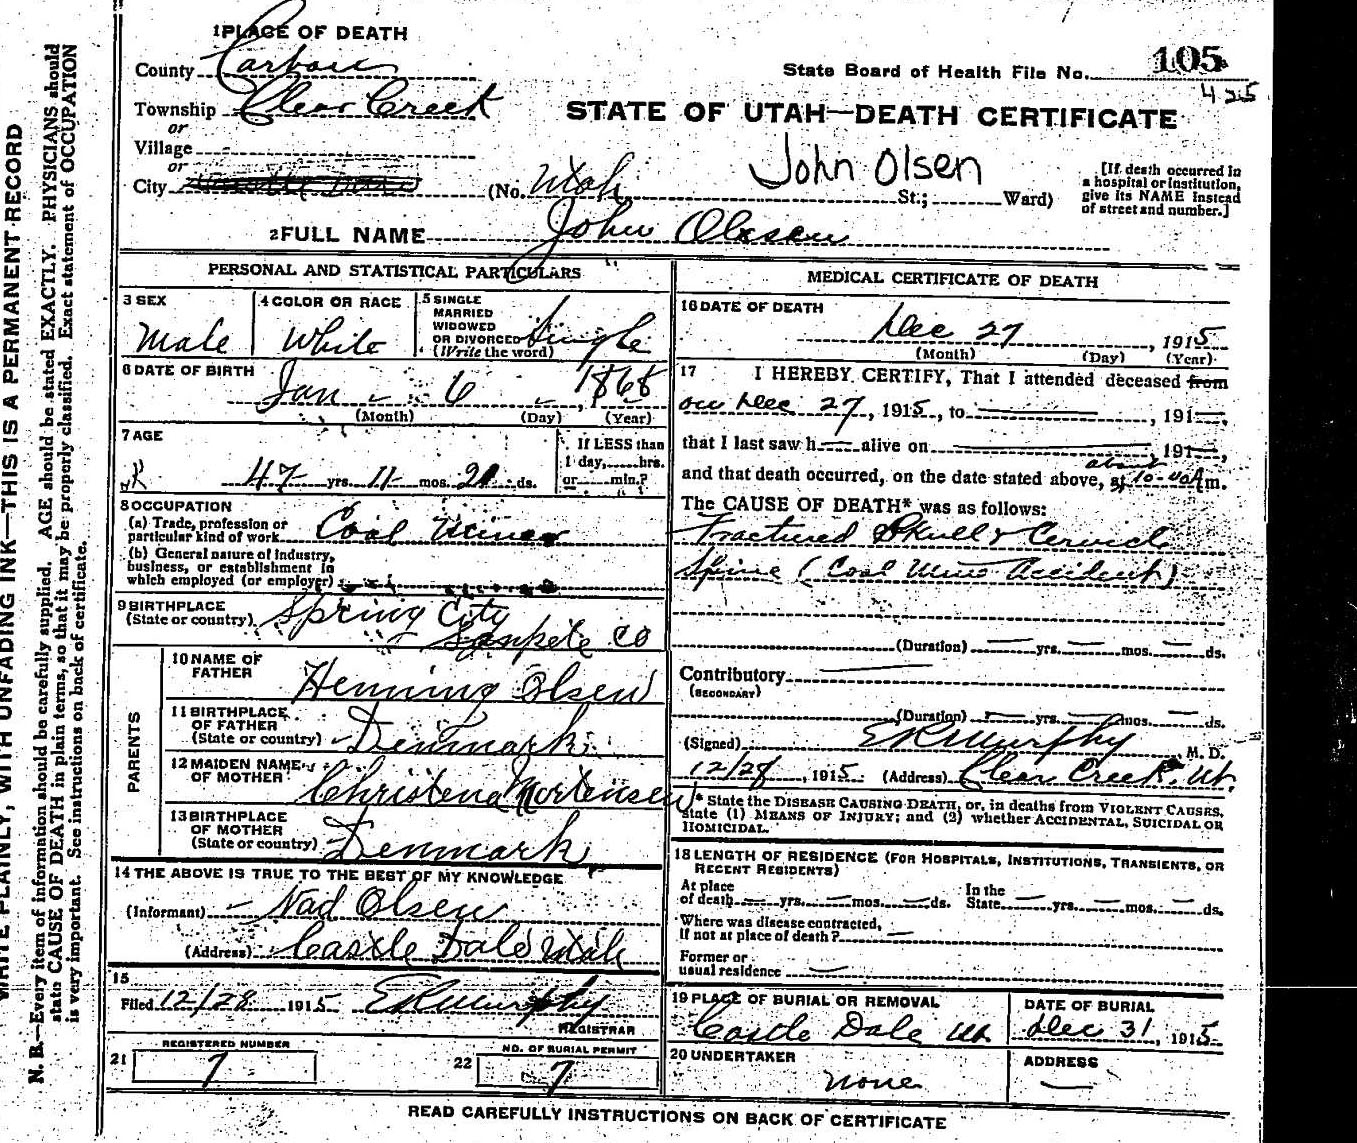 WRITE PLAINLY, WITH UNFADING INK—THIS IS A PERMANENT RECORD
N. B.—Every item of information should be carefully supplied. AGE should be stated EXACTLY. PHYSICIANS should
state CAUSE OF DEATH in plain terms, so that it may be properly classified. Exact statement of OCCUPATION
is very important. See instructions on back of certificate.
1 PLACE OF DEATH
County Carbon
Township Clear Creek
or
Village
or
City Castle Dale (No. Utah St.; Ward)
State Board of Health File No. 105
425
STATE OF UTAH—DEATH CERTIFICATE
John Olsen
[If death occurred in
a hospital or institution,
give its NAME instead
of street and number.]
2 FULL NAME John Olsen
PERSONAL AND STATISTICAL PARTICULARS
3 SEX
Male
4 COLOR OR RACE
White
5 SINGLE
MARRIED
WIDOWED
OR DIVORCED
(Write the word)
Single
6 DATE OF BIRTH
Jan 6, 1868
(Month) (Day) (Year)
7 AGE
47 yrs. 11 mos. 21 ds.
If LESS than
1 day, hrs.
or min.?
8 OCCUPATION
(a) Trade, profession or
particular kind of work Coal Miner
(b) General nature of industry,
business, or establishment in
which employed (or employer)
9 BIRTHPLACE
(State or country) Spring City
Sanpete Co
PARENTS
10 NAME OF
FATHER Henning Olsen
11 BIRTHPLACE
OF FATHER
(State or country) Denmark
12 MAIDEN NAME
OF MOTHER Christena Mortensen
13 BIRTHPLACE
OF MOTHER
(State or country) Denmark
14 THE ABOVE IS TRUE TO THE BEST OF MY KNOWLEDGE
(Informant) Nad Olsen
(Address) Castle Dale Utah
15
Filed 12/28 1915 E R Murphy
REGISTRAR
21 REGISTERED NUMBER
7
22 NO. OF BURIAL PERMIT
7
MEDICAL CERTIFICATE OF DEATH
16 DATE OF DEATH
Dec 27, 1915
(Month) (Day) (Year)
17 I HEREBY CERTIFY, That I attended deceased from
on Dec 27, 1915, to , 191 ,
that I last saw h alive on 191 ,
and that death occurred, on the date stated above, at about 10 m.
The CAUSE OF DEATH* was as follows:
Fractured Skull & Cervical
Spine (Coal Mine Accident)
(Duration) yrs. mos. ds.
Contributory
(SECONDARY)
(Duration) yrs. mos. ds.
(Signed) E R Murphy M. D.
12/28, 1915 (Address) Clear Creek, Ut.
* State the DISEASE CAUSING DEATH, or, in deaths from VIOLENT CAUSES,
state (1) MEANS OF INJURY; and (2) whether ACCIDENTAL, SUICIDAL OR
HOMICIDAL.
18 LENGTH OF RESIDENCE (FOR HOSPITALS, INSTITUTIONS, TRANSIENTS, OR
RECENT RESIDENTS)
At place
of death yrs. mos. ds.
In the
State yrs. mos. ds.
Where was disease contracted,
If not at place of death?
Former or
usual residence
19 PLACE OF BURIAL OR REMOVAL
Castle Dale Ut
DATE OF BURIAL
Dec 31, 1915
20 UNDERTAKER
none
ADDRESS
READ CAREFULLY INSTRUCTIONS ON BACK OF CERTIFICATE